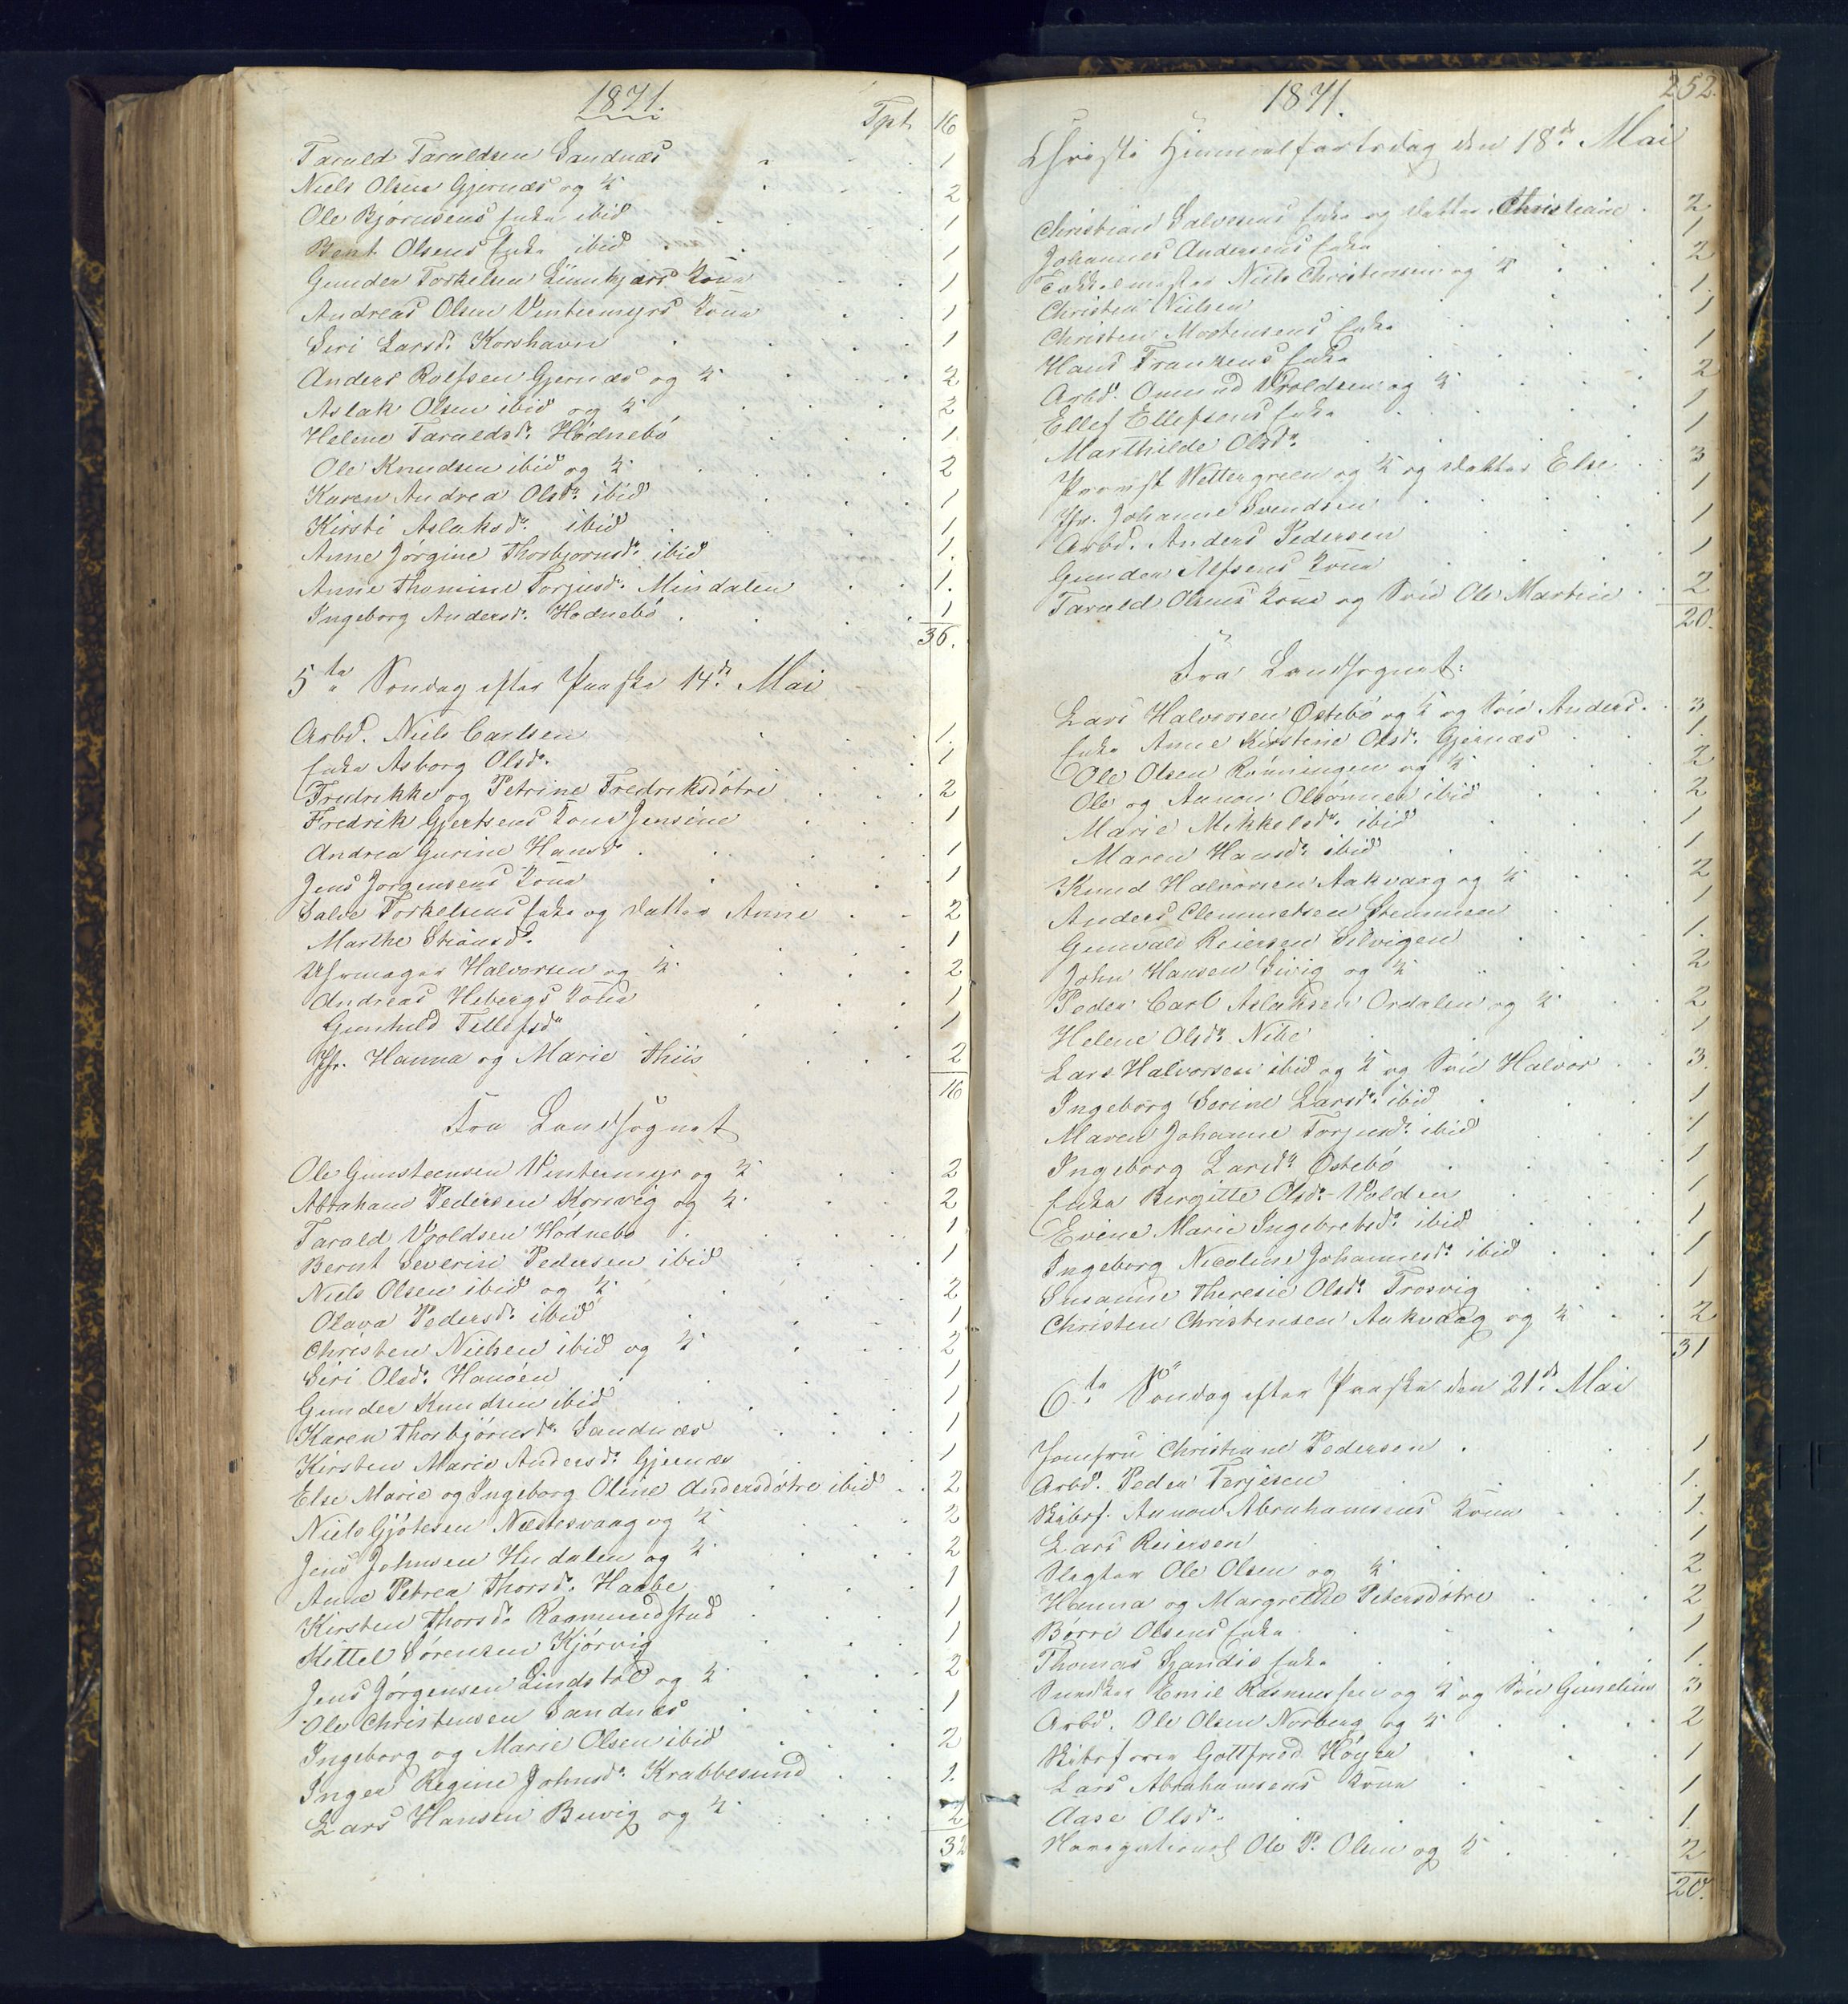 1871.
Tpt. 16
Tarald Taraldsen Sandnæs 1
Niels Olsen Gjernæs og K. 2
Ole Bjørnsens Enke ibid 1
Bent Olsens Enke ibid 1
Gunder Torkelsen Kona 1
Andreas Olsen Vintermyrs Kona 1
Siri Larsd. Korshavn 1
Anders Rolfsen Gjernæs og K. 2
Aslak Olsen ibid og K. 2
Helene Taraldsd. Hødnebö 1
Ole Knudsen ibid og K. 2
Karen Andrea Olsdr. ibid 1
Kirsti Aslaksdr. ibid 1
Anne Jørgine Thorbjørnsdr. ibid 1.
Anne Thomine Torjusdr. Mindalen 1.
Ingeborg Andersdr. Hødnebö 1
36.
5te Søndag efter Paaske 14de Mai
Arbd. Niels Carlsen 1.
Enke Asborg Olsdr. 1
Fredrikke og Petrine Fredriksdötre 2
Fredrik Gjertsens Kona Jensine 1
Andrea Gurine Hansdr. 1
Jens Jørgensens Kona 1
Salve Torkelsens Enke og Datter Anne 2
Marthe Stiansdr. 1
Uhrmager Halvorsen og K. 2
Andreas Hebergs Kona 1
Gunhild Tellefsdr 1
Jfr. Hanna og Marie Thiis 2
16
Fra Landsognet
Ole Gunsteensen Vintermyr og K. 2
Abraham Pedersen Korsvig og K. 2
Tarald Vroldsen Hødnebö 1
Bernt Severin Pedersen ibid 1
Niels Olsen ibid og K. 2
Olava Pedersdr. ibid 1
Christen Nielsen ibid og K. 2
Siri Olsdr. Hanöen 1
Gunder Knudsen ibid 1
Karen Thorbjørnsdr. Sandnæs 1
Kirsten Marie Andersdr. Gjernæs 1
Else Marie og Ingeborg Oline Andersdötre ibid 2
Niels Gjötesen Næstesvaag og K. 2
Jens Johnsen Hudalen og K. 2
Anne Petrea Thorsdr. Haabe 1
Kirsten Thorsdr. Ragmundstad 1
Kittel Sörensen Kjörvig 1
Jens Jörgensen Lindstøl og K. 2
Ole Christensen Sandnæs 1
Ingeborg og Marie Olsen ibid 2
Inger Regine Johnsdr. Krabbesund 1.
Lars Hansen Buvig og K. 2
32
1871.
252.
Christi Himmelfartsdag den 18de Mai
Christian Salvesens Enke og Datter Christiane 2
Johannes Andersens Enke 1
Niels Christensen og K. 2
Christen Nielsen 1.
Christen Mortensens Enke 1
Hans Franzens Enke 1
Arbd. Omund Vroldsen og K. 2
Ellef Ellefsens Enke 1
Marthilde Olsdr. 1
Provst Wettergreen og K. og Datter Else 3
Jfr. Johanne Svendsen 1
Arbd. Anders Pedersen 1
Gunder Alfsens Kona 1
Tarald Olsens Kona og Søn Ole Martin 2
20.
Fra Landsognet:
Lars Halvorsen Østebö og K. og Søn Anders 3
Enke Anne Kirstine Olsdr. Gjernæs 1.
Ole Olsen Rönningen og K. 2
Ole og Aanon Olsönner ibid 2
Marie Mikkelsdr. ibid 1
Maren Hansdr. ibid 1
Knud Halvorsen Aakvaag og K. 2
Anders Clemmetsen Stemmen 1
Gunvald Reiersen Silvigen 1.
John Hansen Sivig og K. 2
Peder Carl Aslaksen Ordalen og K. 2
Helene Olsdr. Nibe 1
Lars Halvorsen ibid og K. og Søn Halvor 3.
Ingeborg Serine Larsdr. ibid 1
Maren Johanne Torjusdr. ibid 1
Ingeborg Larsdr. Østebö 1
Enke Birgitte Olsdr. Volden 1
Evine Marie Ingebretsdr. ibid 1
Ingeborg Nicoline Johannesdr. ibid 1
Susanne Theresie Olsdr. Trosvig 1
Christen Christensen Aakvaag og K. 2
31
6te Søndag efter Paaske den 21de Mai
Jomfru Christiane Pedersen 1
Arbd. Peder Terjesen 1.
Skibsf. Aanon Abrahamsens Kona 1.
Lars Reiersen 1
Slagter Ole Olsen og K. 2
Hanna og Margrethe Petersdötre 2
Börre Olsens Enke 1
Thomas Enke 1.
Snedker Emil Rasmussen og K. og Søn 3
Arbd. Ole Olsen Norberg og K. 2
Skibsfører Gottfried Höyer 1
Lars Abrahamsens Kona 1
Aase Olsdr. 1.
Ole P. Olsen og K. 2
20.